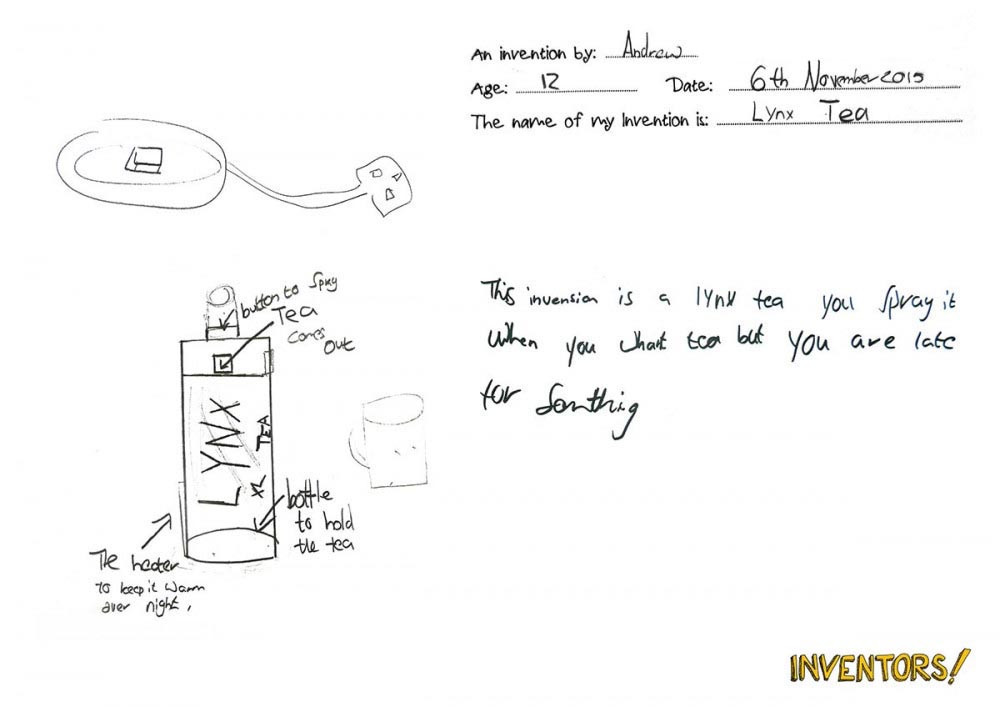 An invention by: Andrew
Age: 12 Date: 6th November 2015
The name of my Invention is: Lynx Tea
button to Spray
Tea
comes
out
LYNX
TEA
XL
bottle
to hold
the tea
The heater
to keep it warm
over night.
This invension is a lynx tea you Spray it
When you whant tea but you are late
for Somthig
INVENTORS!